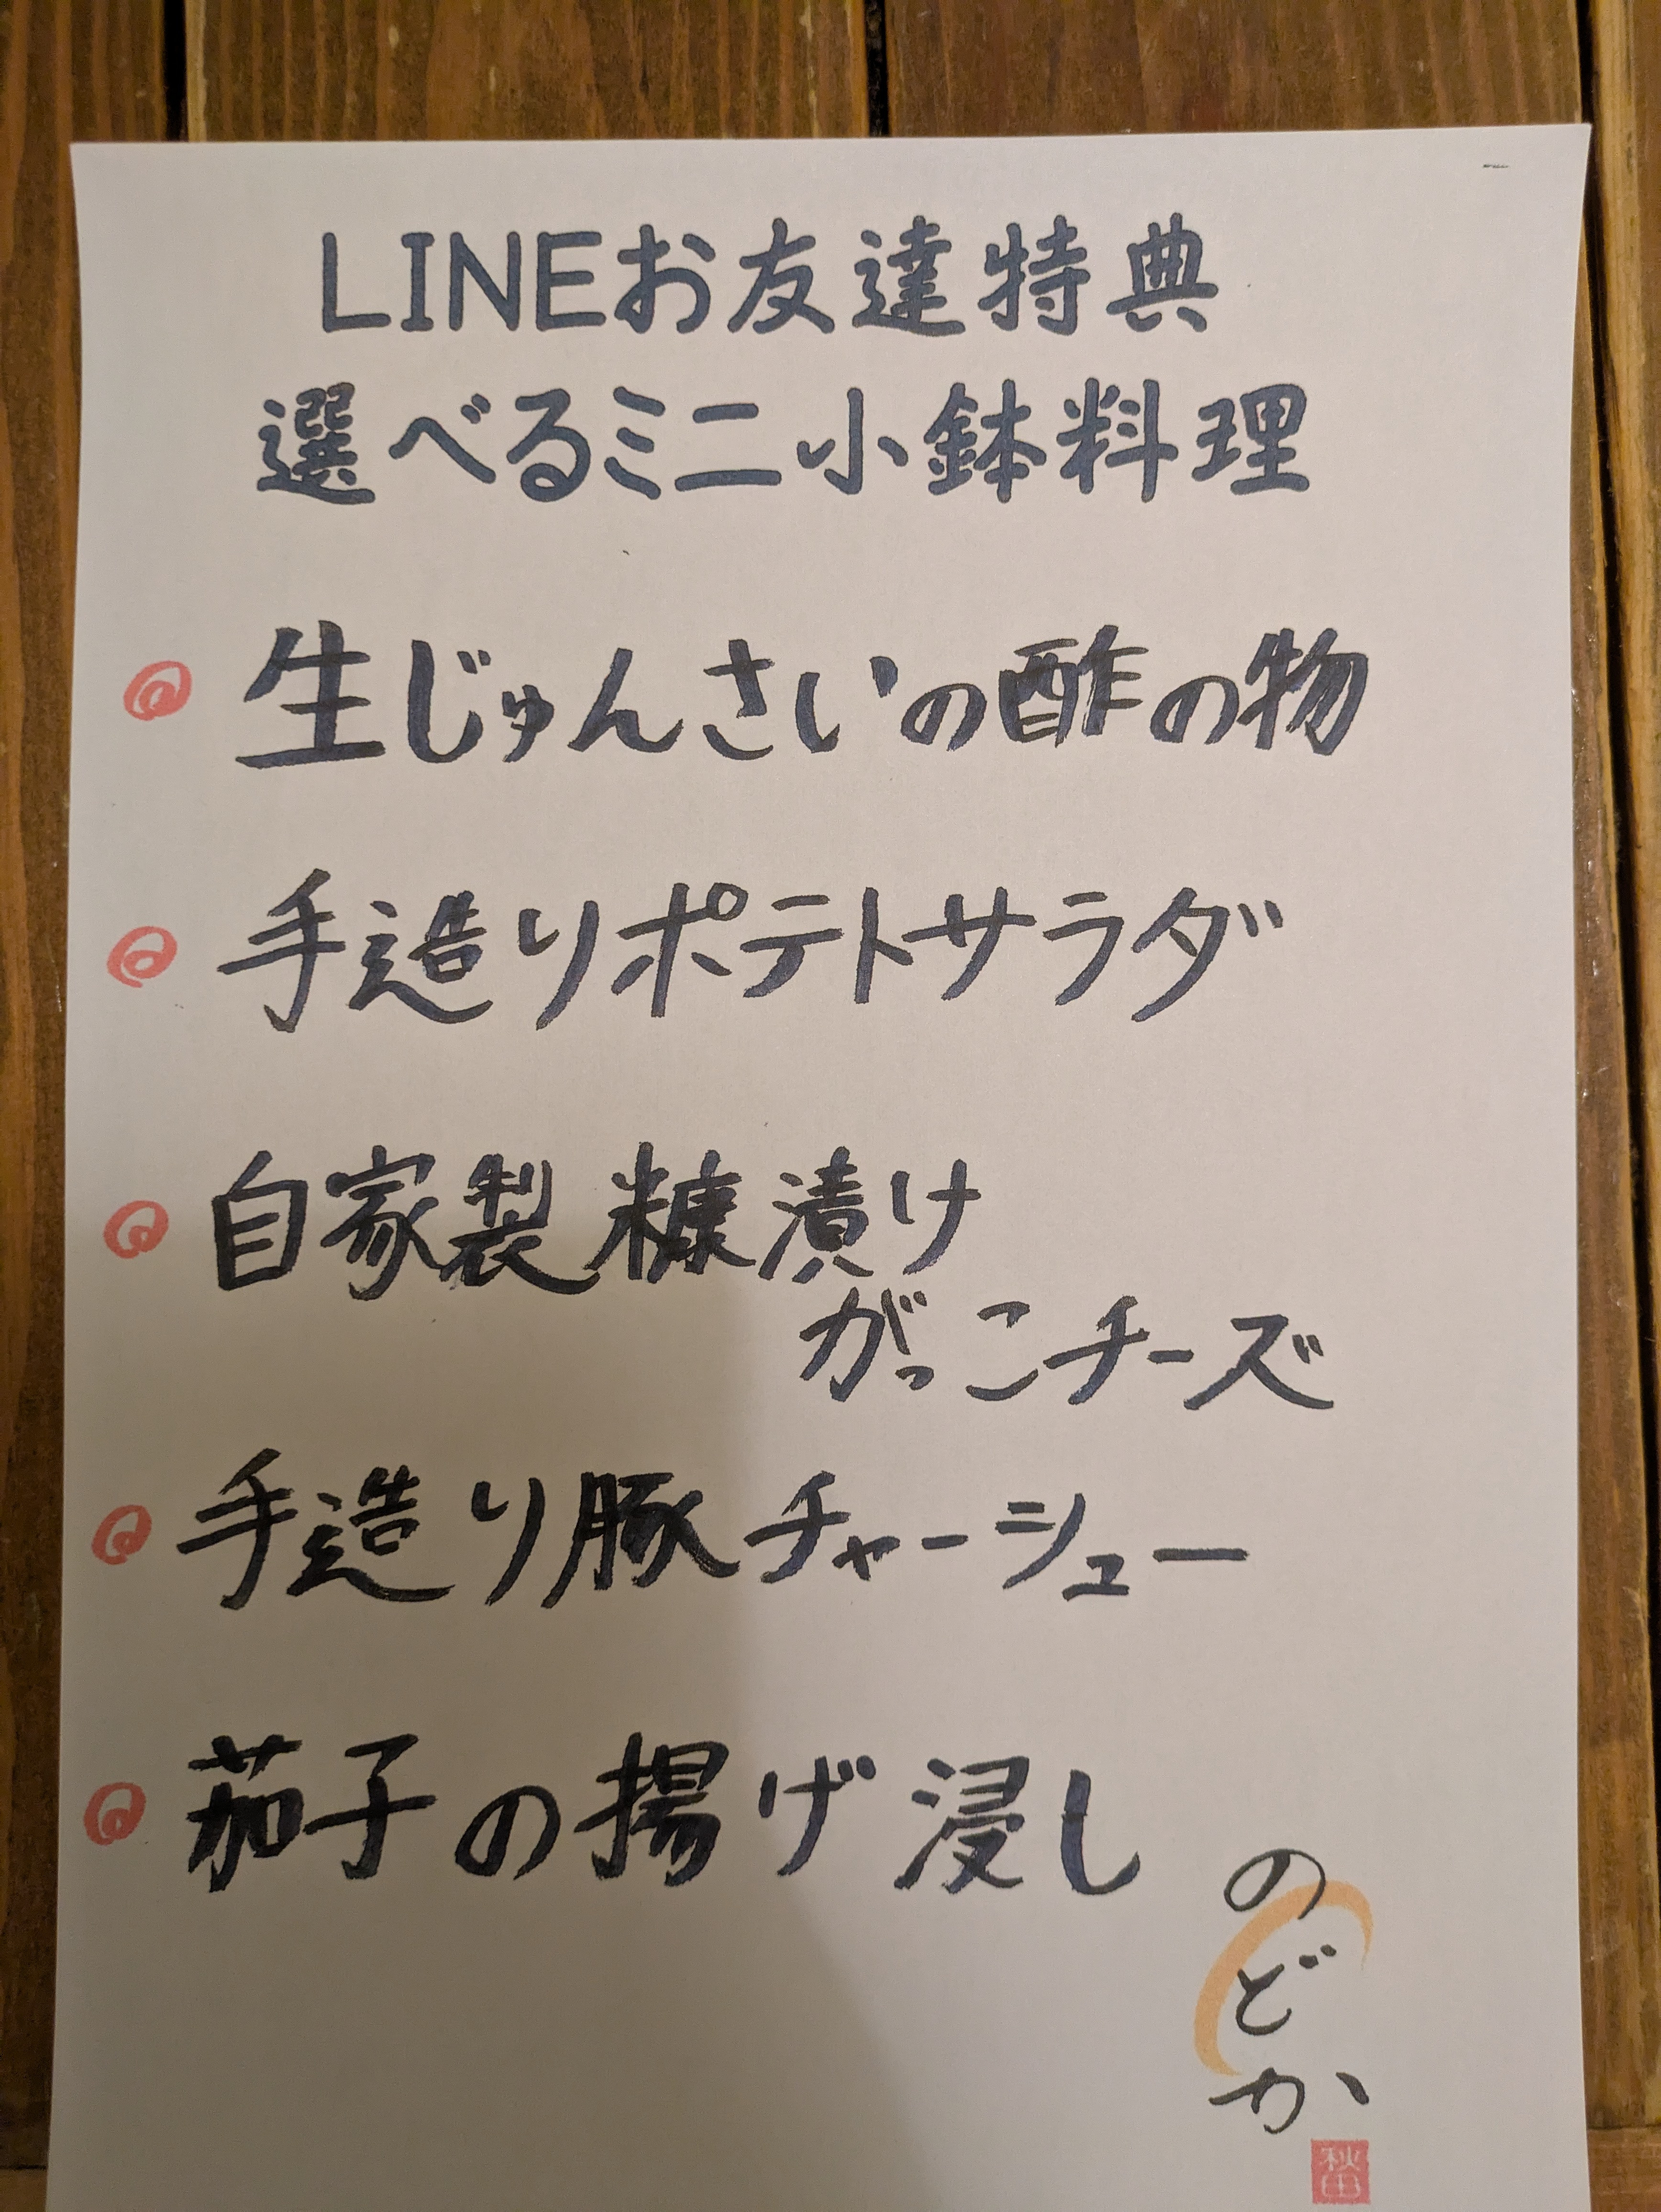 LINEお友達特典
選べるミニ小鉢料理
生じゅんさいの酢の物
手造りポテトサラダ
自家製糠漬け
がっこチーズ
手造り豚チャーシュー
茄子の揚げ浸し
のどか
秋田